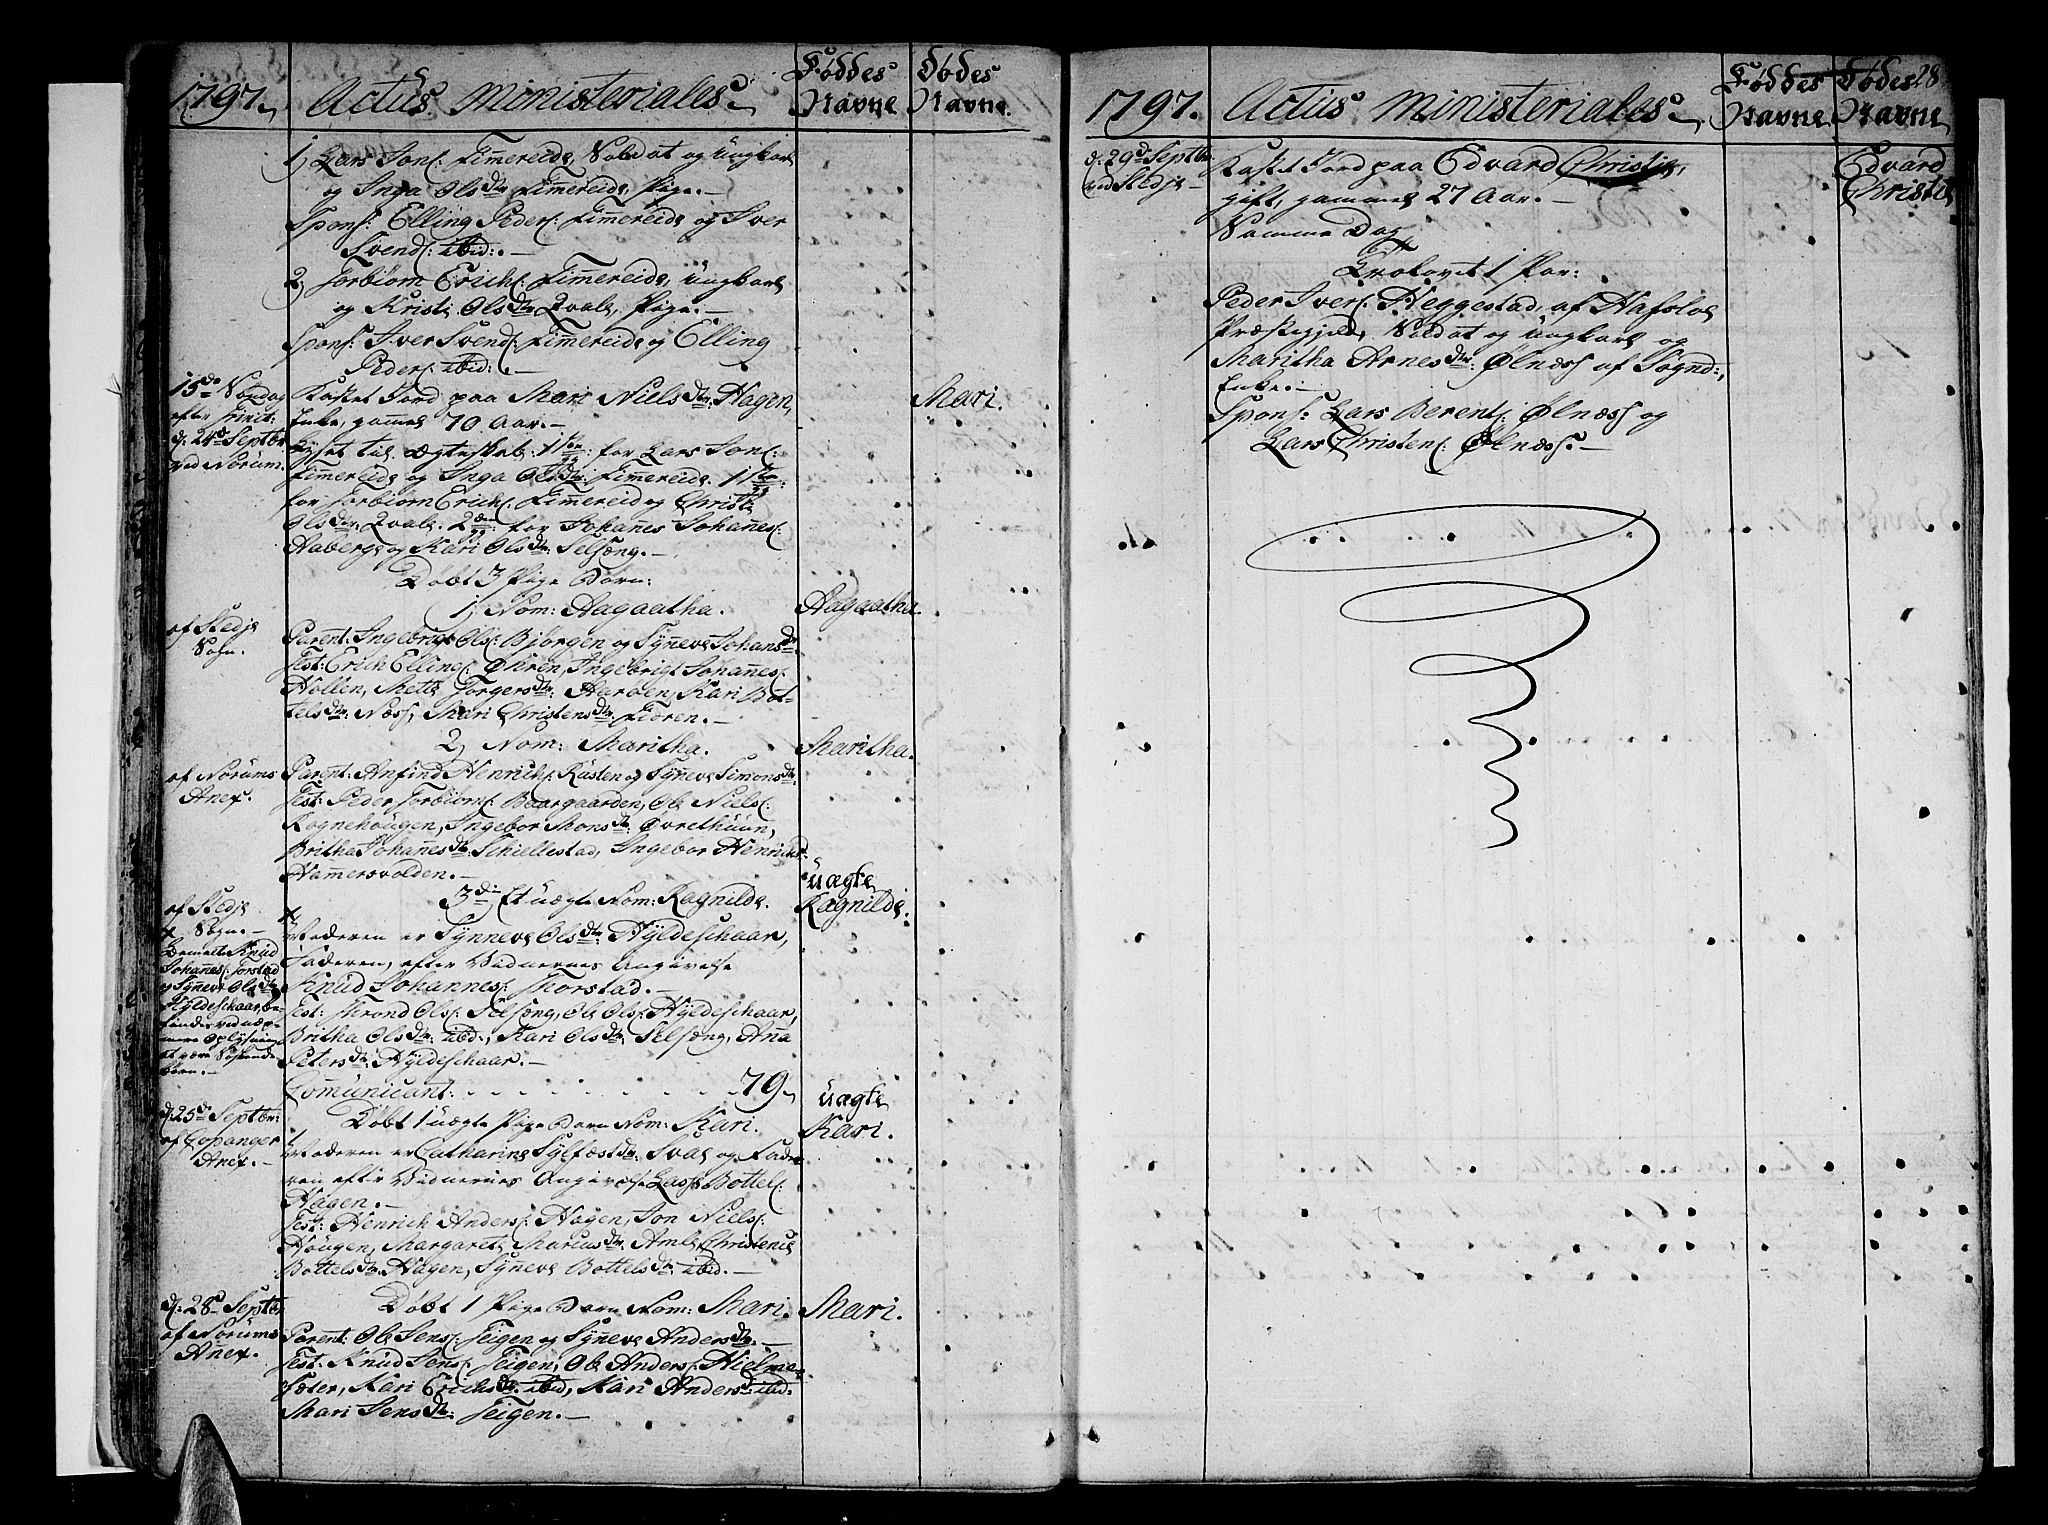 1797.
Actus Ministeriales
Føddes Navne
Dødes Navne.
1, Lars Jons: Fimmereide, Soldat og Ungkarl
og Inga Olsdtr Fimmereide, Pige.
Spons: Elling Peders: Fimmereide og Iver
Svends: ibid:
2, Torbiørn Erichs: Fimmereide, Ungkarl
og Kristi Olsdtr Qvale, Pige.
Spons: Iver Svends: Fimmereide og Elling
Peders: ibid:
15de Søndag
efter Trinit:
d: 24de Septbr
ved Norum.
Kastet Jord paa Mari Nielsdtr: Hagen,
Mari.
Enke, gamel 70 Aar.
Lyset til Ægteskab: 1ste for Lars Jons:
Fimereide og Inga Olsdtr: Fimereide. 1ste
for Torbiørn Erichs: Fimereid og Christi
Olsdtr: Qvale. 2den for Johanes Johanes:
Aaberge og Kari Olsdtr: Selseng.
Døbt 3 Pige Børn:
1, Nom: Aagaatha.
Aagaatha
af Stedje
Sogn.
Parent: Ingebrigt Ols: Bjørgen og Synneve Johansdtr
Test: Erich Ellings: Øhren, Ingebrigt Johanes:
Hollen, Mette Torgersdtr: Aarøen, Kari Bot-
telsdtr: Næss, Mari Christensdtr: Fiæren.
2, Nom: Maritha.
Maritha.
af Norums
Anex.
Parent: Anfind Henrichs: Rusten og Synneve Simonsdtr
Test: Peder Torbiørns: Baargaarden, Ole Niels:
Rognehougen, Ingebor Monsdtr: Øvrethuun,
Britha Johanesdtr: Schiellestad, Ingebor Henrichs-
Hammersvolden.
3die Et uægte Nom: Ragnilde.
uægte
Ragnilde.
af Stedje
Sogn.
Bemelte Knud
Johanes: Torstad
og Synneve Olsdtr
Hyldeschaar, be-
findes ved nær-
mere Oplysning
at være Søskende
børn.
Moderen er Synneve Olsdtr: Hyldeschaar,
Faderen, efter Vidnernes Angivelse
Knud Johannes: Thorstad.
Test: Thrond Ols: Selseng, Ole Ols: Hyldeschaar,
Britha Olsdtr: ibid:, Kari Olsdtr: Selseng, Anna
Petersdtr: Hyldeschaar.
Comunicant: 79.
d: 25de Septbr:
af Copanger
Anex.
Døbt 1 uægte Pige Barn Nom: Kari.
uægte
Kari.
Moderen er Catharine Sylfæstdtr: Svae og Fade
ren efter Vidnernes Angivelse Lasse Bottels:
Hagen.
Test: Henrich Anders: Hagen, Jon Niels:
Hougen, Margarete Marcusdtr: Amle, Christense
Bottelsdtr: Hagen, Synneve Bottelsdtr: ibid.
d: 28de Septbr
af Norums
Anex.
Døbt 1 Pige Barn Nom: Mari.
Mari.
Parent: Ole Jens: Teigen og Synneve Andersdtr:
Test: Knud Jens: Teigen, Ole Anders: Hielme-
sæter, Kari Erichsdtr: ibid, Kari Andersd: ibid:
Mari Jensdtr: Teigen.
1797.
Actus Ministeriales
Føddes Navne
Dødes Navne
28
d: 29de Septbr
ved Stedje
Kastet Jord paa Edvard Christie,
Edvard
Christie
gift, gammel 27 Aar.
Samme Dag
Trolovet 1 Par:
Peder Ivers: Heggestad, af Hafsloe
Præstegjeld, Soldat og Ungkarl og
Maritha Arnesdtr: Ølnæss af Sognd:,
Enke.
Spons: Lars Berents: Ølnæss og
Lars Christens: Ølnæss.